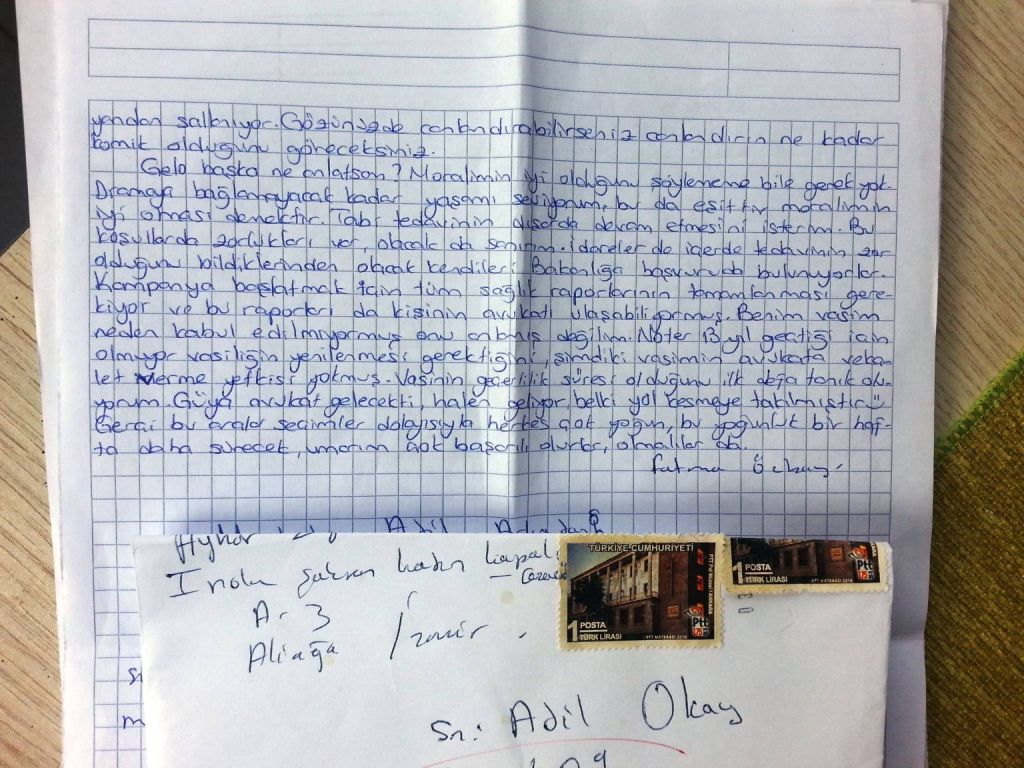 yandan sallanıyor. Gözünüzde canlandırabilirseniz canlandırın ne kadar
komik olduğunu göreceksiniz.
başka ne anlatsam? Moralimin iyi olduğunu söylememe bile gerek yok.
Dramaya bağlamayacak kadar yaşamı seviyorum, bu da eşittir moralimin
iyi olması demektir. Tabi tedavinin dışarda devam etmesini isterim. Bu
koşullarda zorlukları var, olacak da sanırım. İdareler de içerde tedavimin zor
olduğunu bildiklerinden olacak kendileri Bakanlığa başvuruda bulunuyorlar.
Kampanya başlatmak için tüm sağlık raporlarının tamamlanması gere-
kiyor ve bu raporları da kişinin avukatı ulaşabiliyormuş. Benim vasim
neden kabul edilmiyormuş onu anlamış değilim. Noter 13 yıl geçtiği için
olmıyor vasiliğin yenilenmesi gerektiğini, şimdiki vasimin avukata veka-
let verme yetkisi yokmuş. Vasinin geçerlilik süresi olduğunu ilk defa tanık olu-
yorum. Güya avukat gelecekti, halen geliyor, belki yol kesmeye takılmıştır
Gerçi bu aralar seçimler dolayısıyla herkes çok yoğun, bu yoğunluk bir haf-
ta daha sürecek, umarım çok başarılı olurlar, olmalılar da.
Fatma
Adil
kadın kapalı
A-3
Aliağa / İzmir.
Sn: Adil Okay
TÜRKİYE CUMHURİYETİ
1 POSTA
TÜRK LİRASI
PTT MATBAASI 2016
Ptt
1 POSTA
TÜRK LİRASI
PTT MATBAASI 2016
Ptt